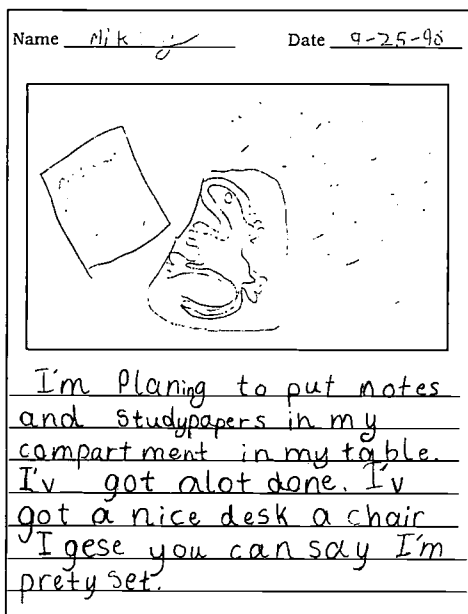 Name Date 9-25-90
I'm Planing to put notes
and studypapers in my
compartment in my table.
I'v got alot done. I'v
got a nice desk a chair
I gese you can say I'm
prety set.